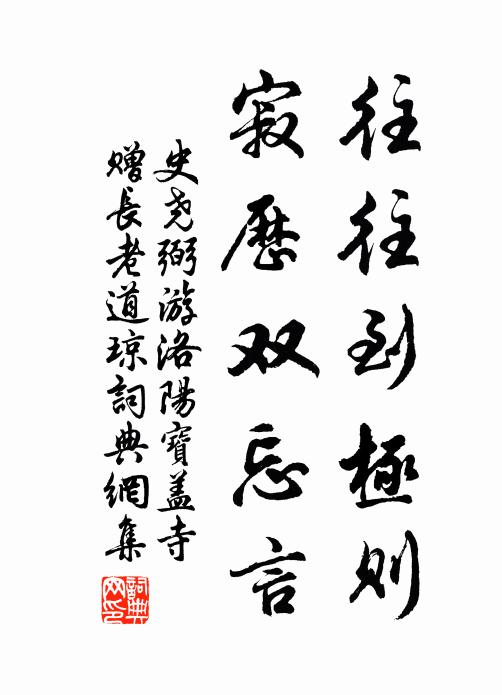 往往到極則
寂歷双忘言
史尧弼游洛陽寶盖寺
贈長老道琼詞典網集